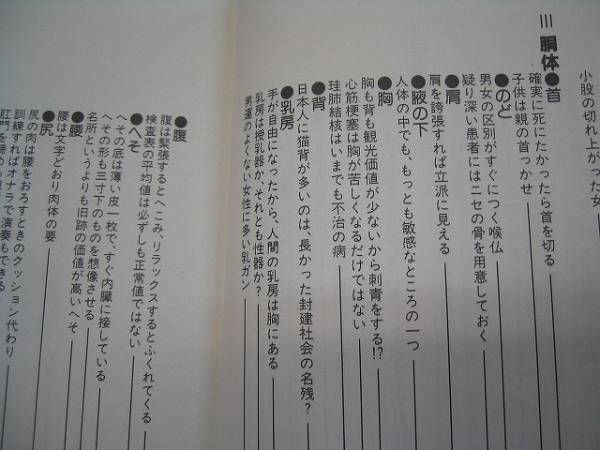 小股の切れ上がった女
III 胴体●首
確実に死にたかったら首を切る
子供は親の首っかせ
●のど
男女の区別がすぐにつく喉仏
疑り深い患者にはニセの骨を用意しておく
●肩
肩を誇張すれば立派に見える
●腋の下
人体の中でも、もっとも敏感なところの一つ
●胸
胸も背も観光価値が少ないから刺青をする!?
心筋梗塞は胸が苦しくなるだけではない
珪肺結核はいまでも不治の病
●背
日本人に猫背が多いのは、長かった封建社会の名残?
●乳房
手が自由になったから、人間の乳房は胸にある
乳房は授乳器か、それとも性器か?
男運のよくない女性に多い乳ガン
●腹
腹は緊張するとへこみ、リラックスするとふくれてくる
検査表の平均値は必ずしも正常値ではない
●へそ
へその底は薄い皮一枚で、すぐ内臓に接している
へその形も三寸下のものを想像させる
名所というよりも旧跡の価値が高いへそ
●腰
腰は文字どおり肉体の要
●尻
尻の肉は腰をおろすときのクッション代わり
訓練すればオナラで演奏もできる
肛門を締める